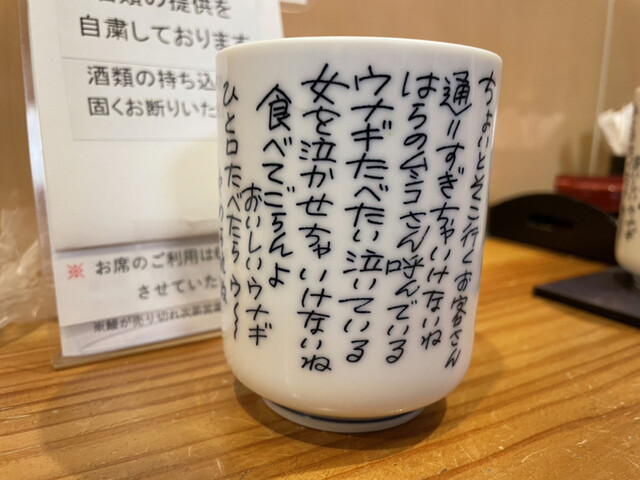 の提供を
自粛しております
酒類の持ち込
固くお断りいた
※ お席のご利用は
させていた
※鰻が売り切れ次第営業
ちょいとそこ行くお客さん
通りすぎちゃいけないね
はらのムシコさん呼んでいる
ウナギたべたい泣いている
女を泣かせちゃいけないね
食べてごらんよ
おいしいウナギ
ひと口たべたらウ〜